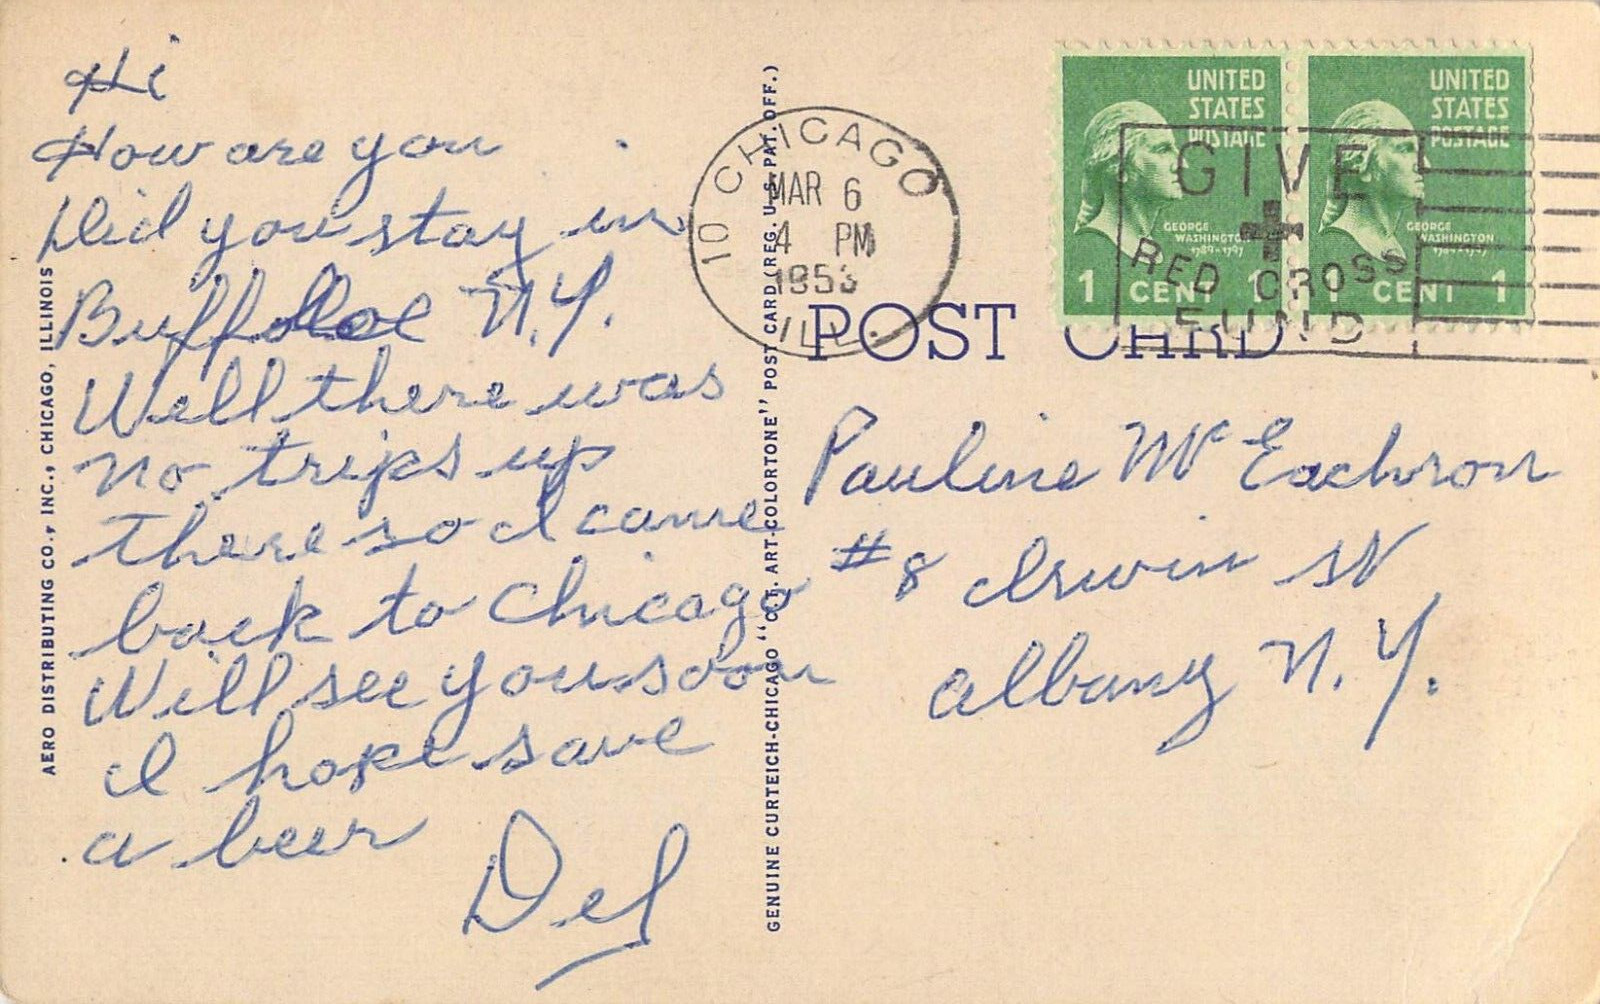 Hi
How are you
Did you stay in
Buffaloe N.Y.
Well there was
no trips up
there so I came
back to Chicago
Will see you soon
I hope save
a beer
Del
AERO DISTRIBUTING CO., INC., CHICAGO, ILLINOIS
GENUINE CURTEICH-CHICAGO "C.T. ART-COLORTONE" POST CARD (REG. U.S. PAT. OFF.)
CHICAGO
10
MAR 6
4 PM
1953
ILL.
UNITED
STATES
POSTAGE
GEORGE
WASHINGTON
1789-1797
1 CENT 1
UNITED
STATES
POSTAGE
GEORGE
WASHINGTON
1789-1797
1 CENT 1
GIVE
RED CROSS
FUND
POST CARD
Pauline McEachron
#8 Irwin St
Albany N.Y.